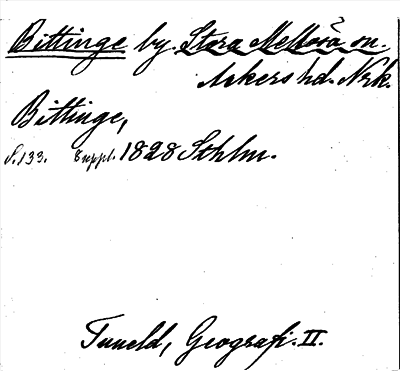 Bittinge by. Stora Mellösa sn.
Askers hd. Nrk.
Bittinge,
S. 133. Suppl. 1828 Sthlm.
Tuneld, Geografi. II.